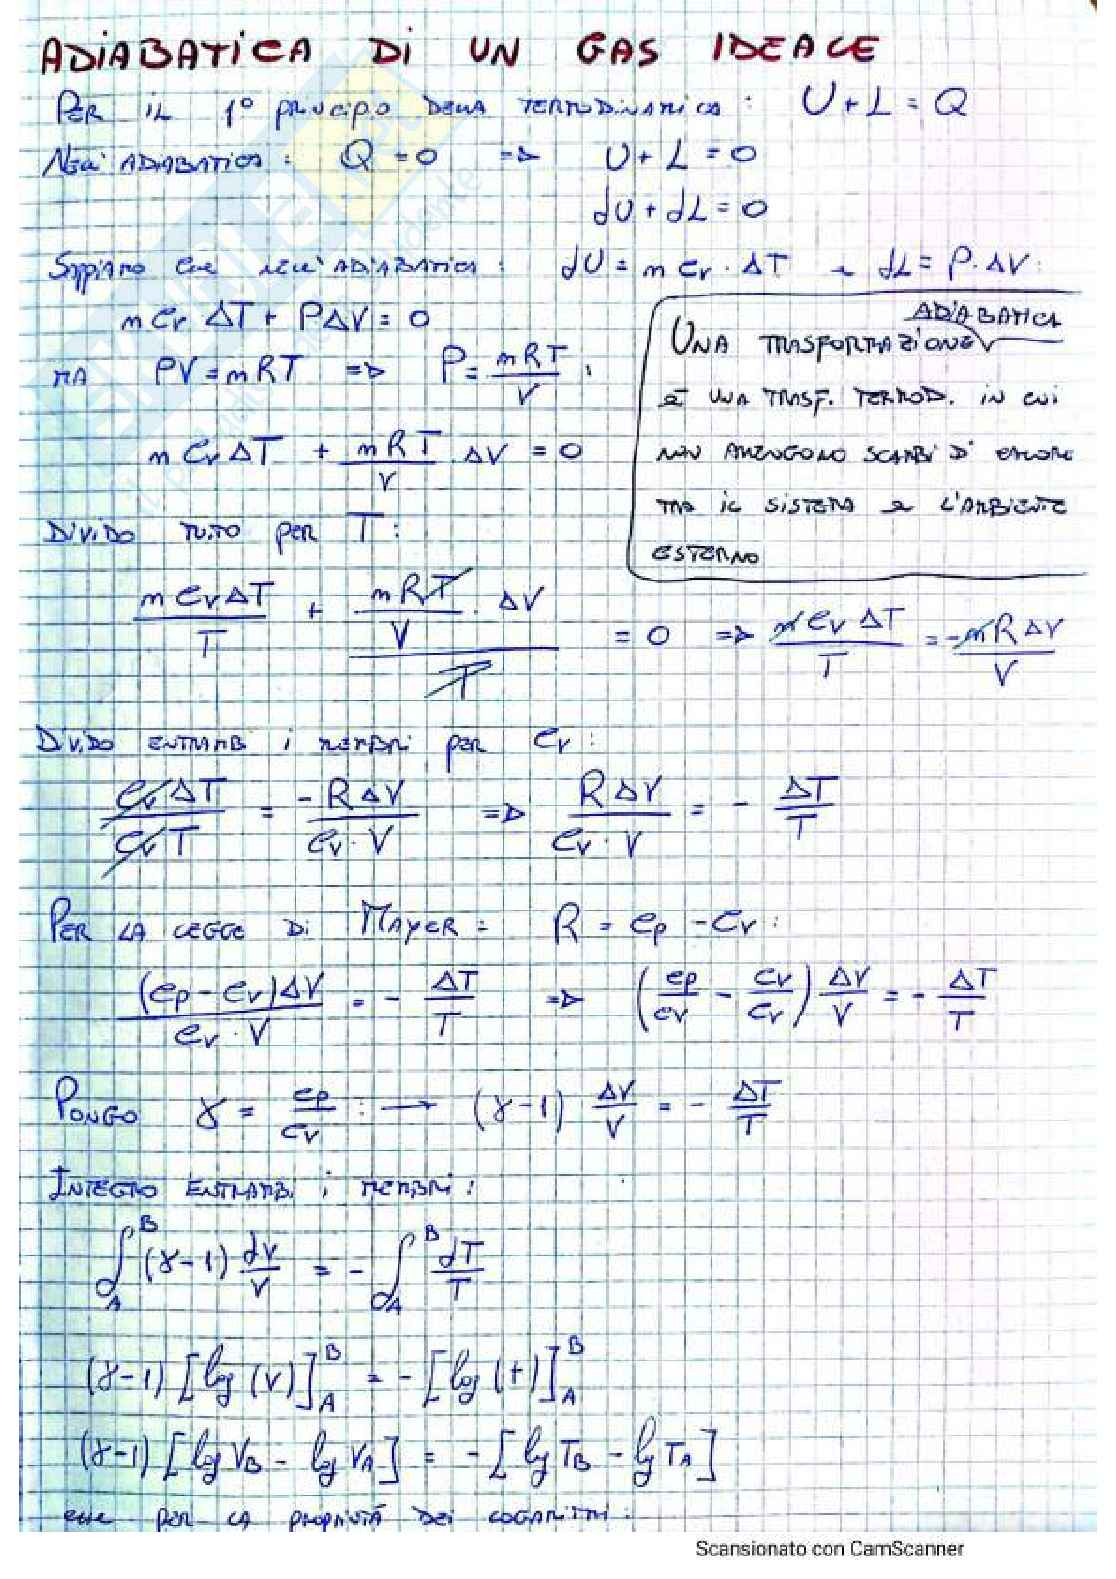 ADIABATICA DI UN GAS IDEALE
PER IL 1° PRINCIPIO DELLA TERMODINAMICA : U + L = Q
NELL' ADIABATICA : Q = 0 => U + L = 0
dU + dL = 0
SAPPIAMO CHE NELL'ADIABATICA : dU = m Cv · ΔT e dL = P · ΔV :
m Cv ΔT + PΔV = 0
MA PV = mRT => P = mRT / V :
m Cv ΔT + mRT / V · ΔV = 0
UNA TRASFORMAZIONE ADIABATICA
È UNA TRASF. TERMOD. IN CUI
NON AVVENGONO SCAMBI DI CALORE
TRA IL SISTEMA E L'AMBIENTE
ESTERNO
DIVIDO TUTTO PER T :
m Cv ΔT / T + (mRT / V · ΔV) / T = 0 => m Cv ΔT / T = - mRΔV / V
DIVIDO ENTRAMBI I MEMBRI PER Cv :
Cv ΔT / Cv T = - RΔV / Cv · V => RΔV / Cv · V = - ΔT / T
PER LA LEGGE DI MAYER : R = Cp - Cv :
(Cp - Cv)ΔV / Cv · V = - ΔT / T => (Cp / Cv - Cv / Cv) ΔV / V = - ΔT / T
PONGO γ = Cp / Cv : → (γ-1) ΔV / V = - ΔT / T
INTEGRO ENTRAMBI I MEMBRI :
∫_A^B (γ-1) dV / V = - ∫_A^B dT / T
(γ-1) [log (V)]_A^B = - [log (t)]_A^B
(γ-1) [log VB - log VA] = - [log TB - log TA]
CHE PER LA PROPRIETÀ DEI LOGARITMI :
Scansionato con CamScanner